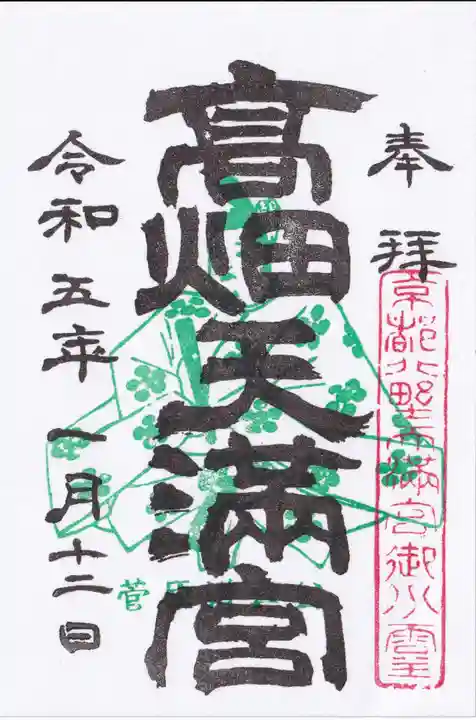 奉拝
京都北野天満宮御分霊
高畑天満宮
菅原
令和五年一月十二日